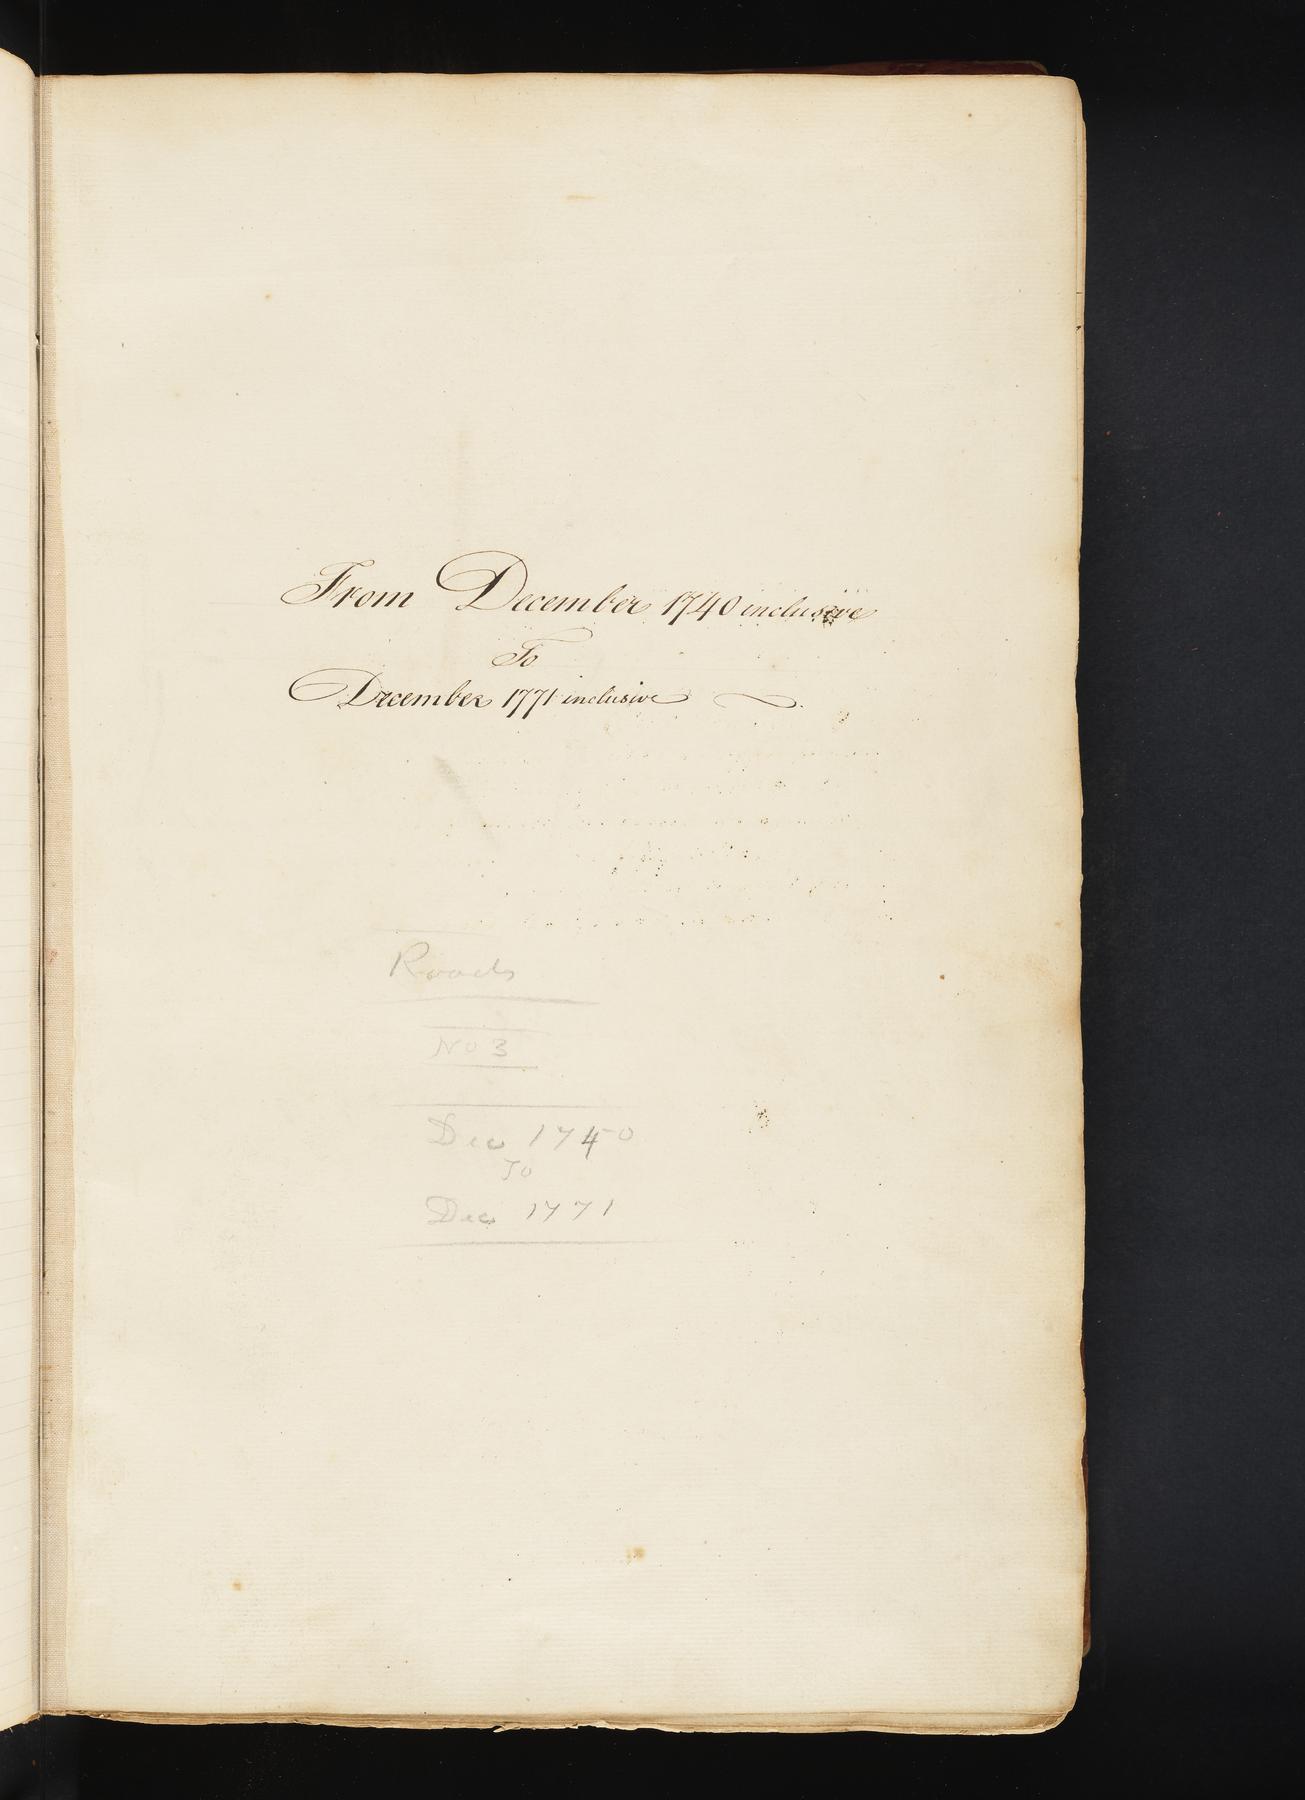 From December 1740 inclusive
To
December 1771 inclusive
Roads
No 3
Dec 1740
To
Dec 1771